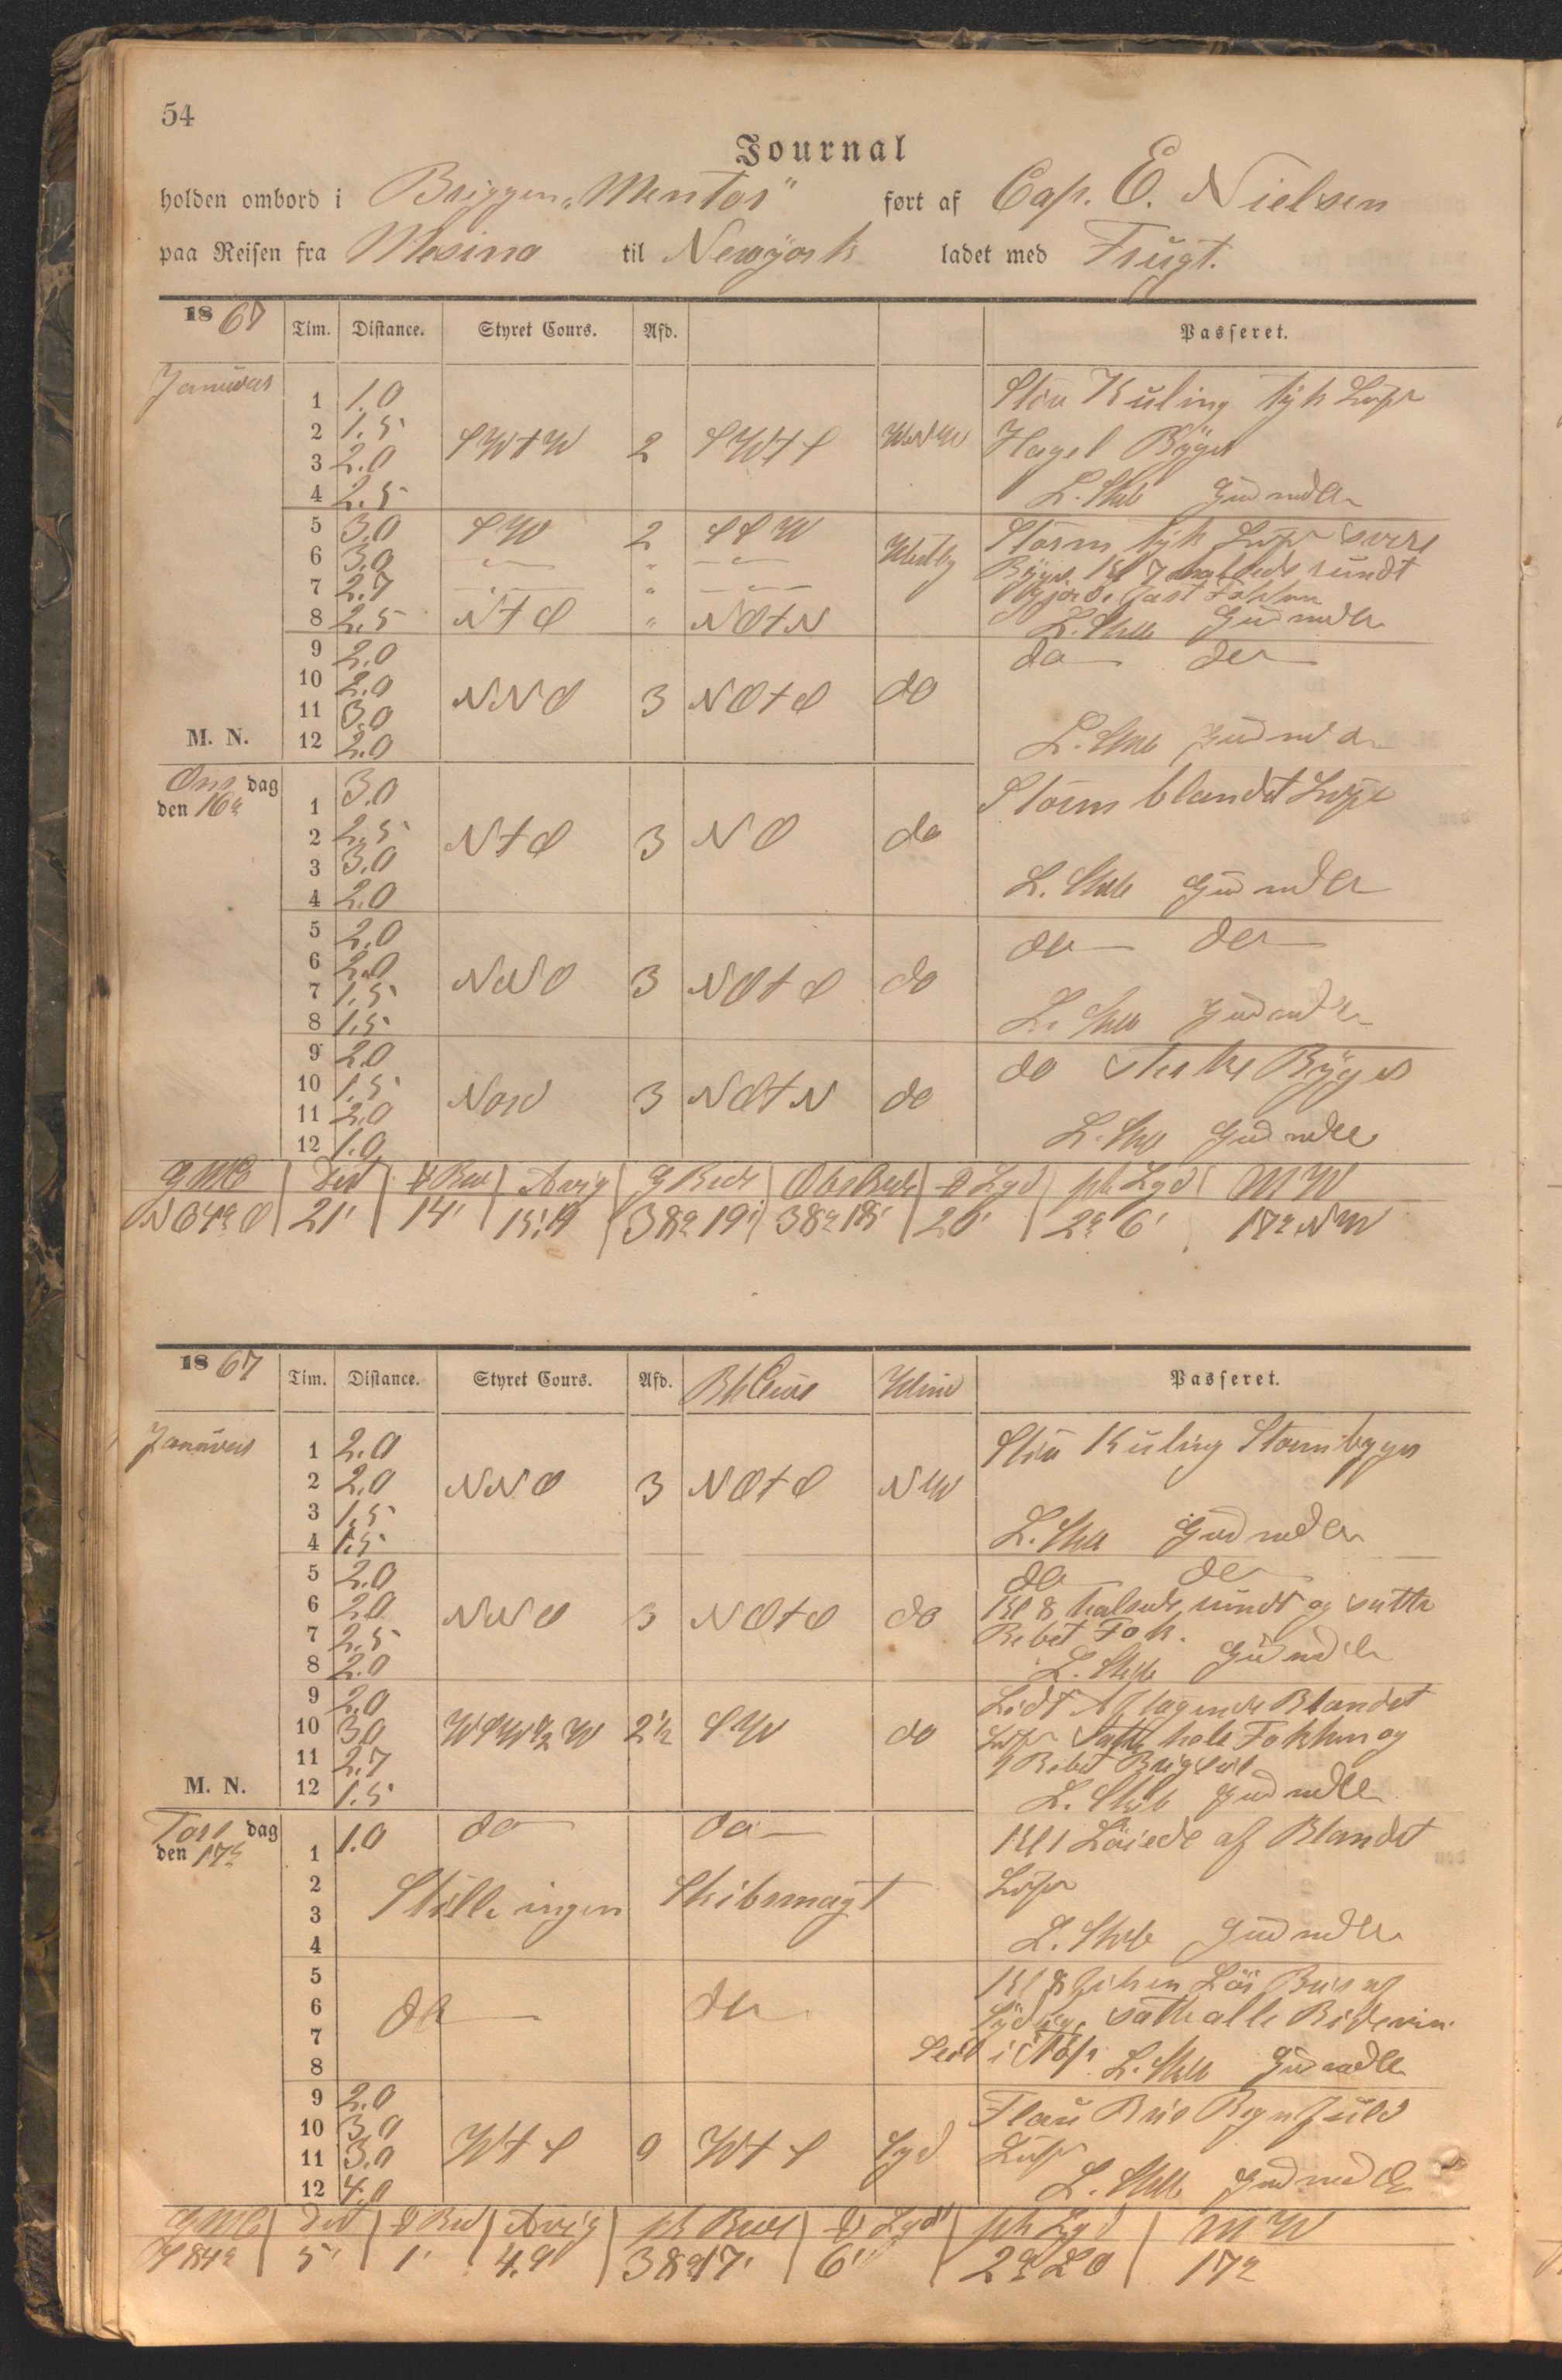 54
Journal
holden ombord i Briggen „Mentor" ført af Cap. E. Nielsen
paa Reisen fra Mesina til Newyork ladet med Frugt.
1867 Tim. Distance. Styret Cours. Afd. Passeret.
Januar
1 1.0 Stiv Kuling tyk Luft
2 1.5 SWtW 2 SWtS WNW Hagel Byger
3 2.0
4 2.5 L. Skib Gud med Os
5 3.0 SW 2 SSW Westlig Storm tyk Luft svere
6 3.0 — " — Byger Kl 7 halsede rundt
7 2.7 — " — Gjorde fast Fokken
8 2.5 NtO " NOtN L. Skib Gud med Os
9 2.0 do do
10 2.0 NNO 3 NOtO do
11 3.0
M. N. 12 2.0 L. Skib Gud med Os
Ons dag den 16de
1 3.0 Storm blandet Luft
2 2.5 NtO 3 NO do
3 3.0
4 2.0 L. Skib Gud med Os
5 2.0 do do
6 2.0 NNO 3 NOtO do
7 1.5
8 1.5 L. Skib Gud med Os
9 2.0 do sterke Byger
10 1.5 Nord 3 NOtN do
11 2.0
12 1.0 L. Skib Gud med Os
Dist Avig MW
N 64° O 21' 14' 38° 19' 38° 18' 20' 2° 6' 17° NW
1867 Tim. Distance. Styret Cours. Afd. Wind Passeret.
Januar
1 2.0 Stiv Kuling Stormbyger
2 2.0 NNO 3 NOtO NW
3 1.5
4 1.5 L. Skib Gud med Os
5 2.0 do do
6 2.0 NNO 3 NOtO do Kl 8 halsede rundt og satte
7 2.5 Rebet Fok.
8 2.0 L. Skib Gud med Os
9 2.0 Lidt Aftagende Blandet
10 3.0 WSW½W 2½ SW do Luft Satte hele Fokken og
11 2.7 1 Rebet Brigseil
M. N. 12 1.5 L. Skib Gud med Os
Tors dag den 17de
1 1.0 do do Kl 1 Løiede af Blandet
2 Stille ingen Skibsmagt Luft
3
4 L. Skib Gud med Os
5 Kl 8 fik en Løi Bris af
6 do do satte alle
7
8 Seil i Top. L. Skib Gud med Os
9 2.0 Flau Bris Regnfuld
10 3.0 WtS 0 WtS Syd Luft
11 3.0
12 4.0 L. Skib Gud med Os
Dist Avig MW
S 84° 5' 1' 4.9 38° 17' 6' 17°